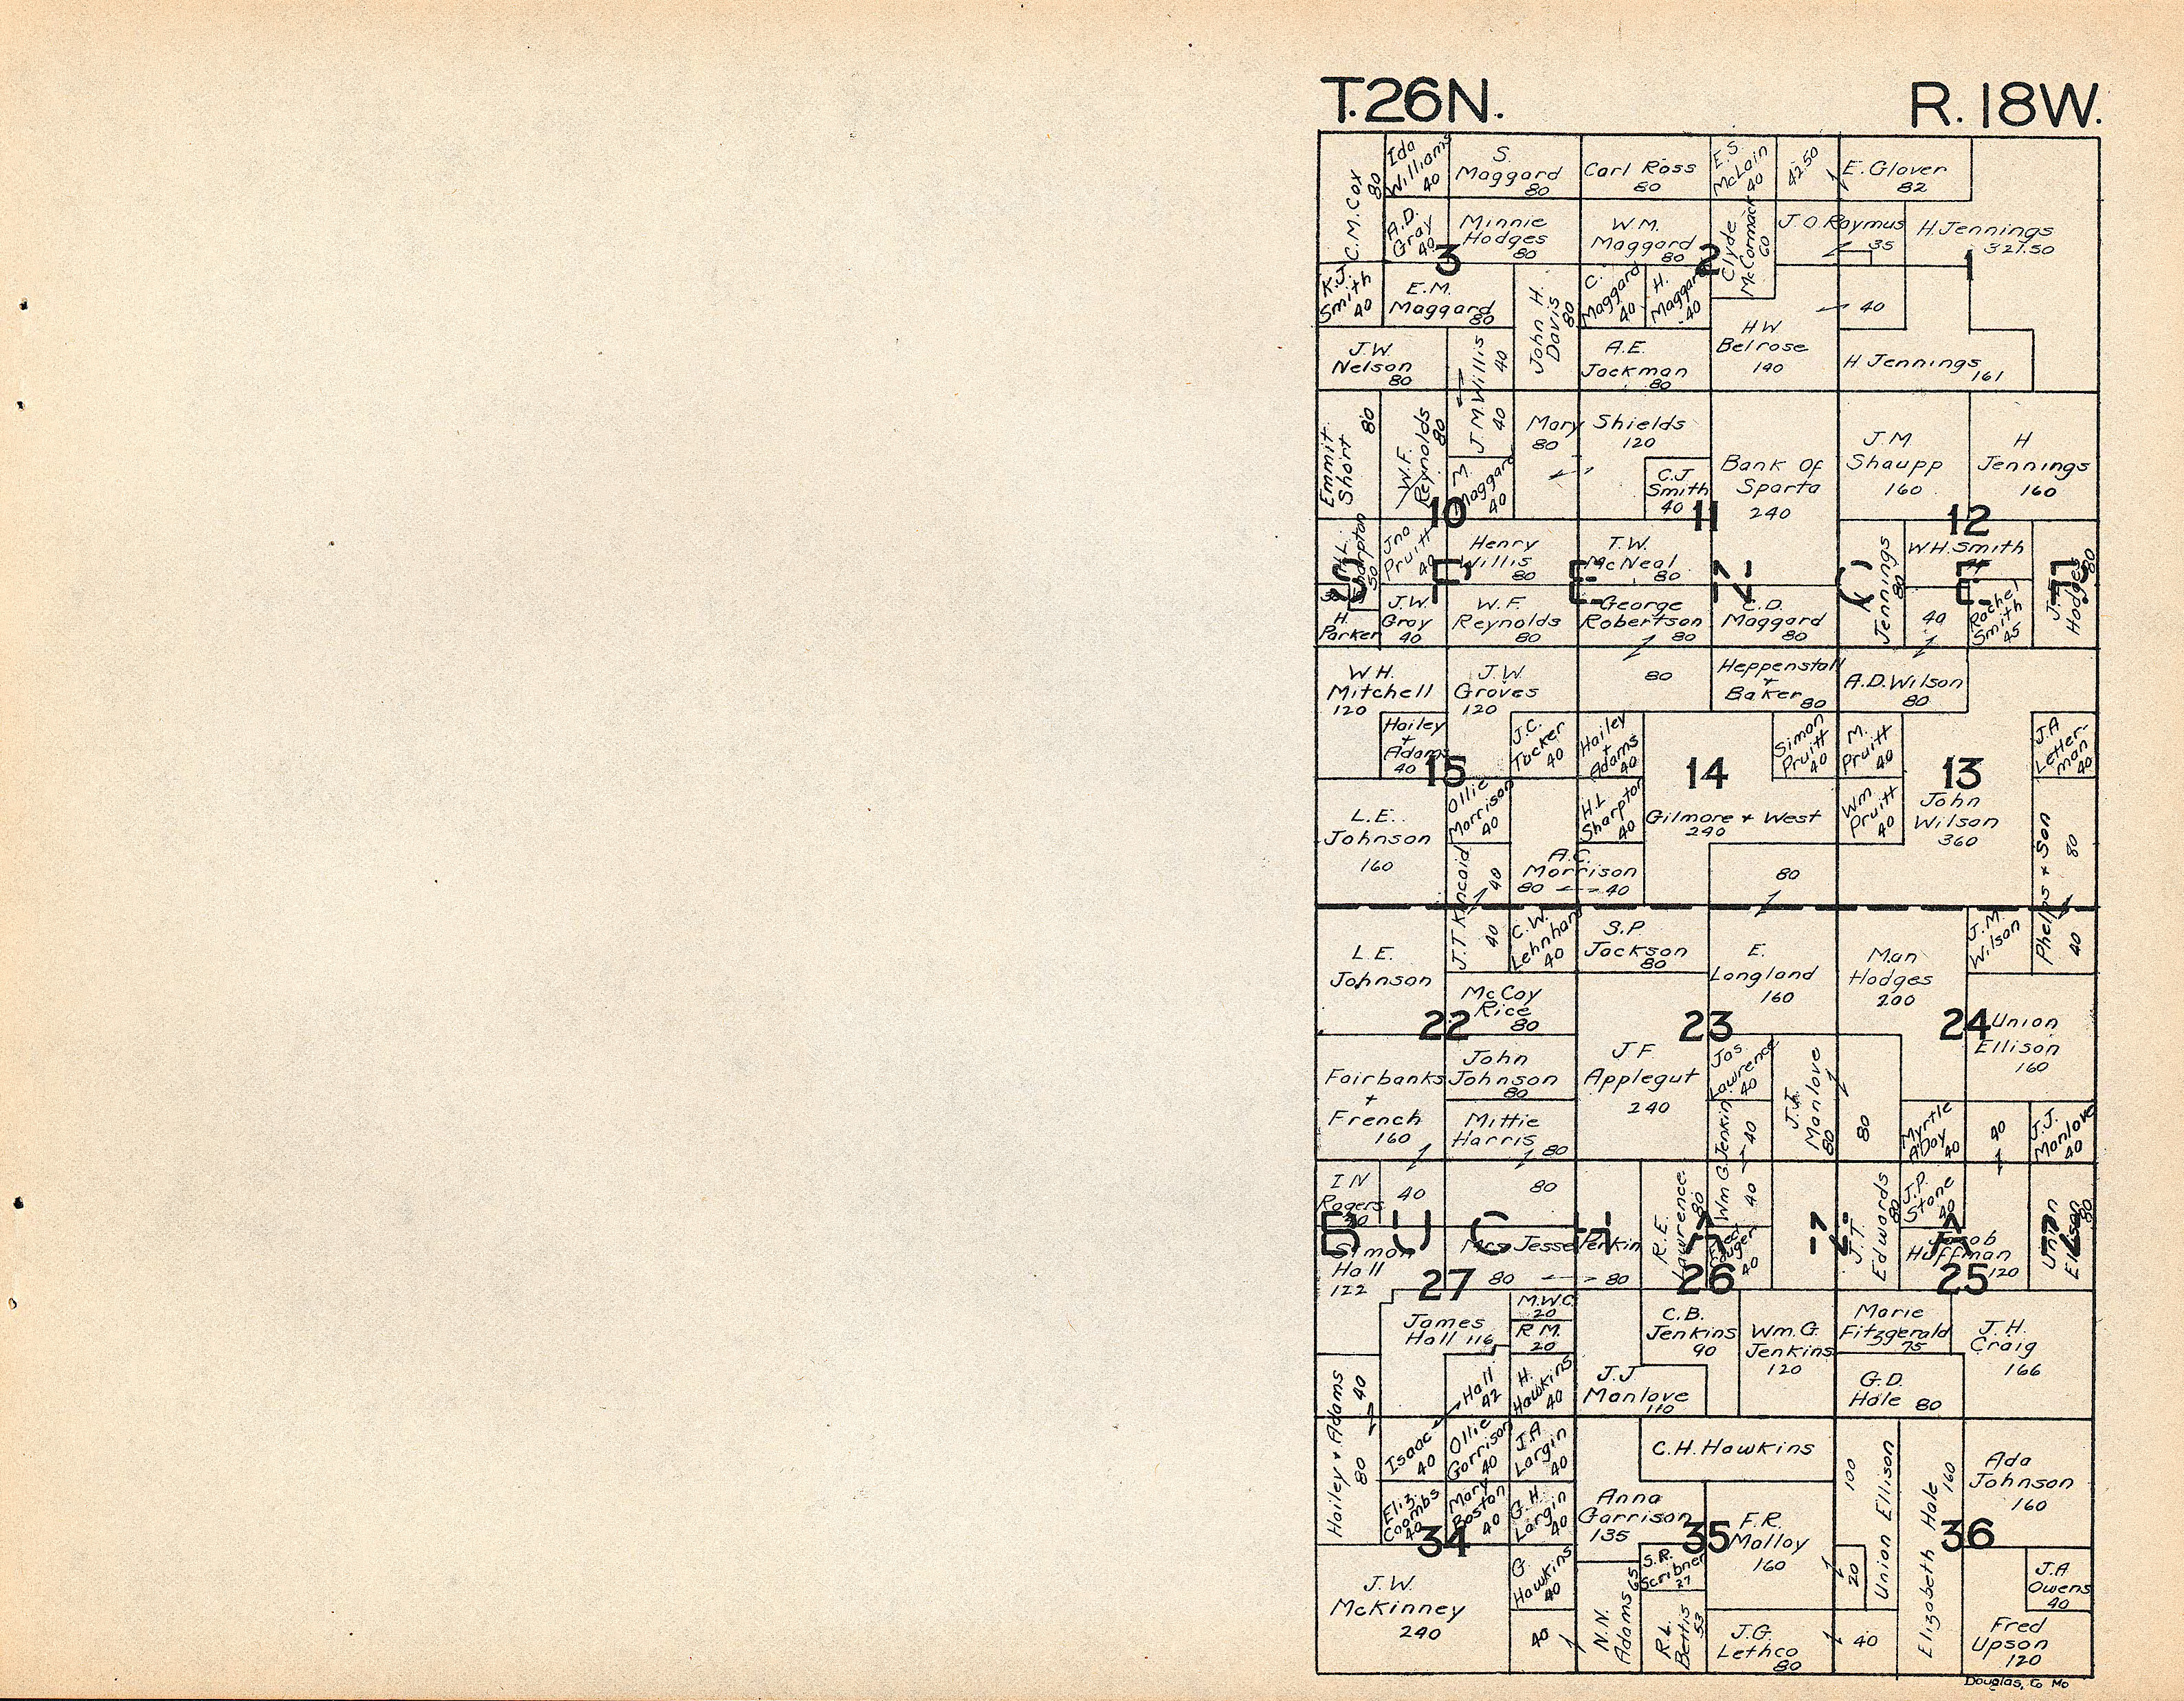 T.26N.
R.18W.
C.M.Cox
80
Ida
Williams
40
S.
Maggard
80
Carl Ross
80
E.S.
McLain
40
42.50
E. Glover
82
A.D.
Gray
40
Minnie
Hodges
80
W.M.
Maggard
80
Clyde
McCormack
60
J.O Raymus
35
H. Jennings
321.50
3
2
1
K.J.
Smith
40
E.M.
Maggard
80
John H.
Davis
80
C.
Maggard
40
H.
Maggard
40
40
J.W.
Nelson
80
J M Willis
40
40
A.E.
Jackman
80
H W
Belrose
140
H Jennings
161
Emmit
Short
80
W.F.
Reynolds
80
M.
Maggard
40
Mary Shields
80
120
C.J
Smith
40
Bank Of
Sparta
240
J.M
Shaupp
160
H
Jennings
160
10
11
12
H.L.
Sharpton
50
Jno
Pruitt
40
Henry
Willis
80
T.W.
McNeal
80
Jennings
80
W.H. Smith
Hodges
80
SPENCER
H.
Parker
J.W.
Gray
40
W.F.
Reynolds
80
George
Robertson
80
C.D.
Maggard
80
40
Rachel
Smith
45
W H.
Mitchell
120
J.W.
Groves
120
80
Heppenstall
+
Baker
80
A.D.Wilson
80
Hailey
+
Adams
40
J.C.
Tucker
40
Hailey
+
Adams
40
Simon
Pruitt
40
M.
Pruitt
40
J.A
Letter-
man
40
15
14
13
L.E.
Johnson
160
Ollie
Morrison
40
H.L
Sharpton
40
Gilmore + West
240
Wm
Pruitt
40
John
Wilson
360
J.T Kincaid
40
40
A.C.
Morrison
80
40
80
Phelps + Son
80
40
L.E.
Johnson
C.W.
Lehnhard
40
S.P.
Jackson
80
E.
Longland
160
Man
Hodges
200
J.M.
Wilson
McCoy
Rice
80
22
23
24
Union
Ellison
160
Fairbanks
+
French
160
John
Johnson
80
J F
Applegut
240
Jas
Lawrence
40
J.J.
Manlove
80
80
Mittie
Harris
80
Wm G Jenkin
40
40
Myrtle
A Day
40
40
J.J.
Manlove
40
I N
Rogers
40
80
R.E.
Lawrence
80
J.T.
Edwards
80
J.P.
Stone
40
Union
Ellison
80
BUCHANAN
Simon
Hall
122
Mrs Jesse Perkin
80
80
40
Jacob
Huffman
120
27
26
25
James
Hall 116
M.W.C.
20
R M.
20
C.B.
Jenkins
90
Wm. G.
Jenkins
120
Marie
Fitzgerald
75
J.H.
Craig
166
Hailey + Adams
40
80
Isaac Hall
42
40
H.
Hawkins
40
J.J
Manlove
110
G.D.
Hale 80
Ollie
Gorrison
40
J.A
Largin
40
C.H. Hawkins
100
Union Ellison
Elizabeth Hale
160
Ada
Johnson
160
Eliz.
Coombs
40
Mary
Boston
40
G.H.
Largin
40
Anna
Garrison
135
F.R.
Malloy
160
34
35
36
J.W.
McKinney
240
G
Hawkins
40
40
S.R.
Scribner
27
20
J.A
Owens
40
N.N.
Adams
65
R.L.
Bettis
53
J.G.
Lethco
80
40
Fred
Upson
120
Douglas, Co Mo